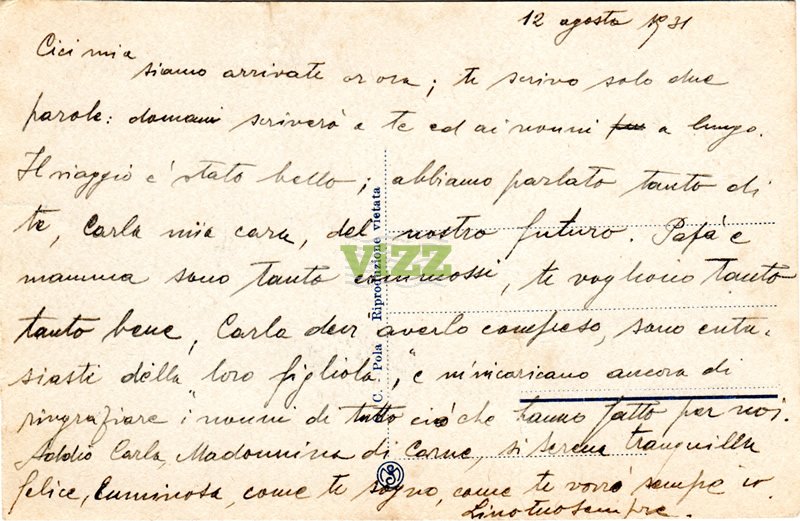 12 agosto 1931
Cici mia
siamo arrivate or ora; te scrivo solo due
parole: domani scriverò a te ed ai nonni a lungo.
Il viaggio è stato bello; abbiamo parlato tanto di
te, Carla mia cara, del nostro futuro. Papà e
mamma sono tanto commossi, te vogliono tanto
tanto bene, Carla devi averlo compreso, sono entu-
siasti della "loro figliola," e m'incaricano ancora di
ringraziare i nonni di tutto ciò che hanno fatto per noi.
Addio Carla, Madonnina di Carne, sii serena tranquilla
felice, luminosa, come te sogno, come te vorrò sempre io.
Lino tuo sempre.
C. - Pola Riproduzione vietata
VIZZ